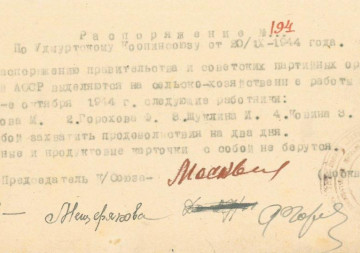 Распоряжение № 194
По Удмуртскому Коопинсоюзу от 20/IX-1944 года.
распоряжению правительства и советских партийных ор
АССР выделяются на сельско-хозяйственн е работы
е октября 1944 г. следующие работники:
ова М. 2. Горохова Ф. 3 Шуклина И.
бой захватить продовольствия на два дня.
ные и продуктовые карточки с собой не берутся.,
Председатель К/Союза-
Мещерякова